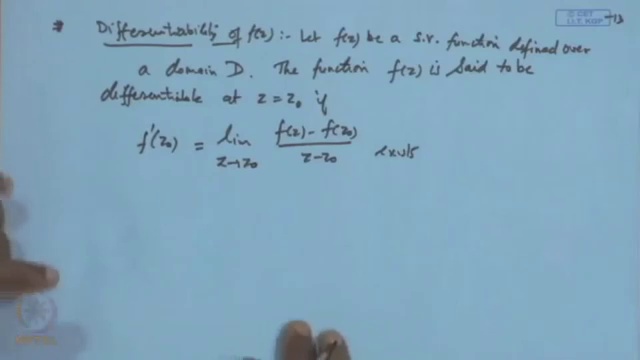 © CET
I.I.T. KGP
* Differentiability of f(z) :- Let f(z) be a s.v. function defined over
a domain D. The function f(z) is said to be
differentiable at z = z₀ if
f'(z₀) = lim z→z₀ (f(z) - f(z₀))/(z - z₀) exists